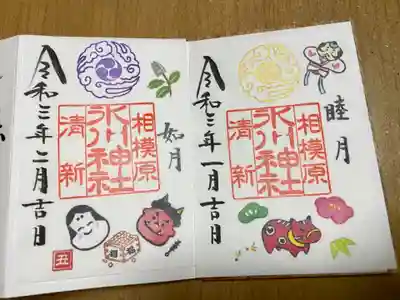 睦月
相模原
氷川神社
清新
令和三年一月吉日
如月
相模原
氷川神社
清新
令和三年二月吉日
丑